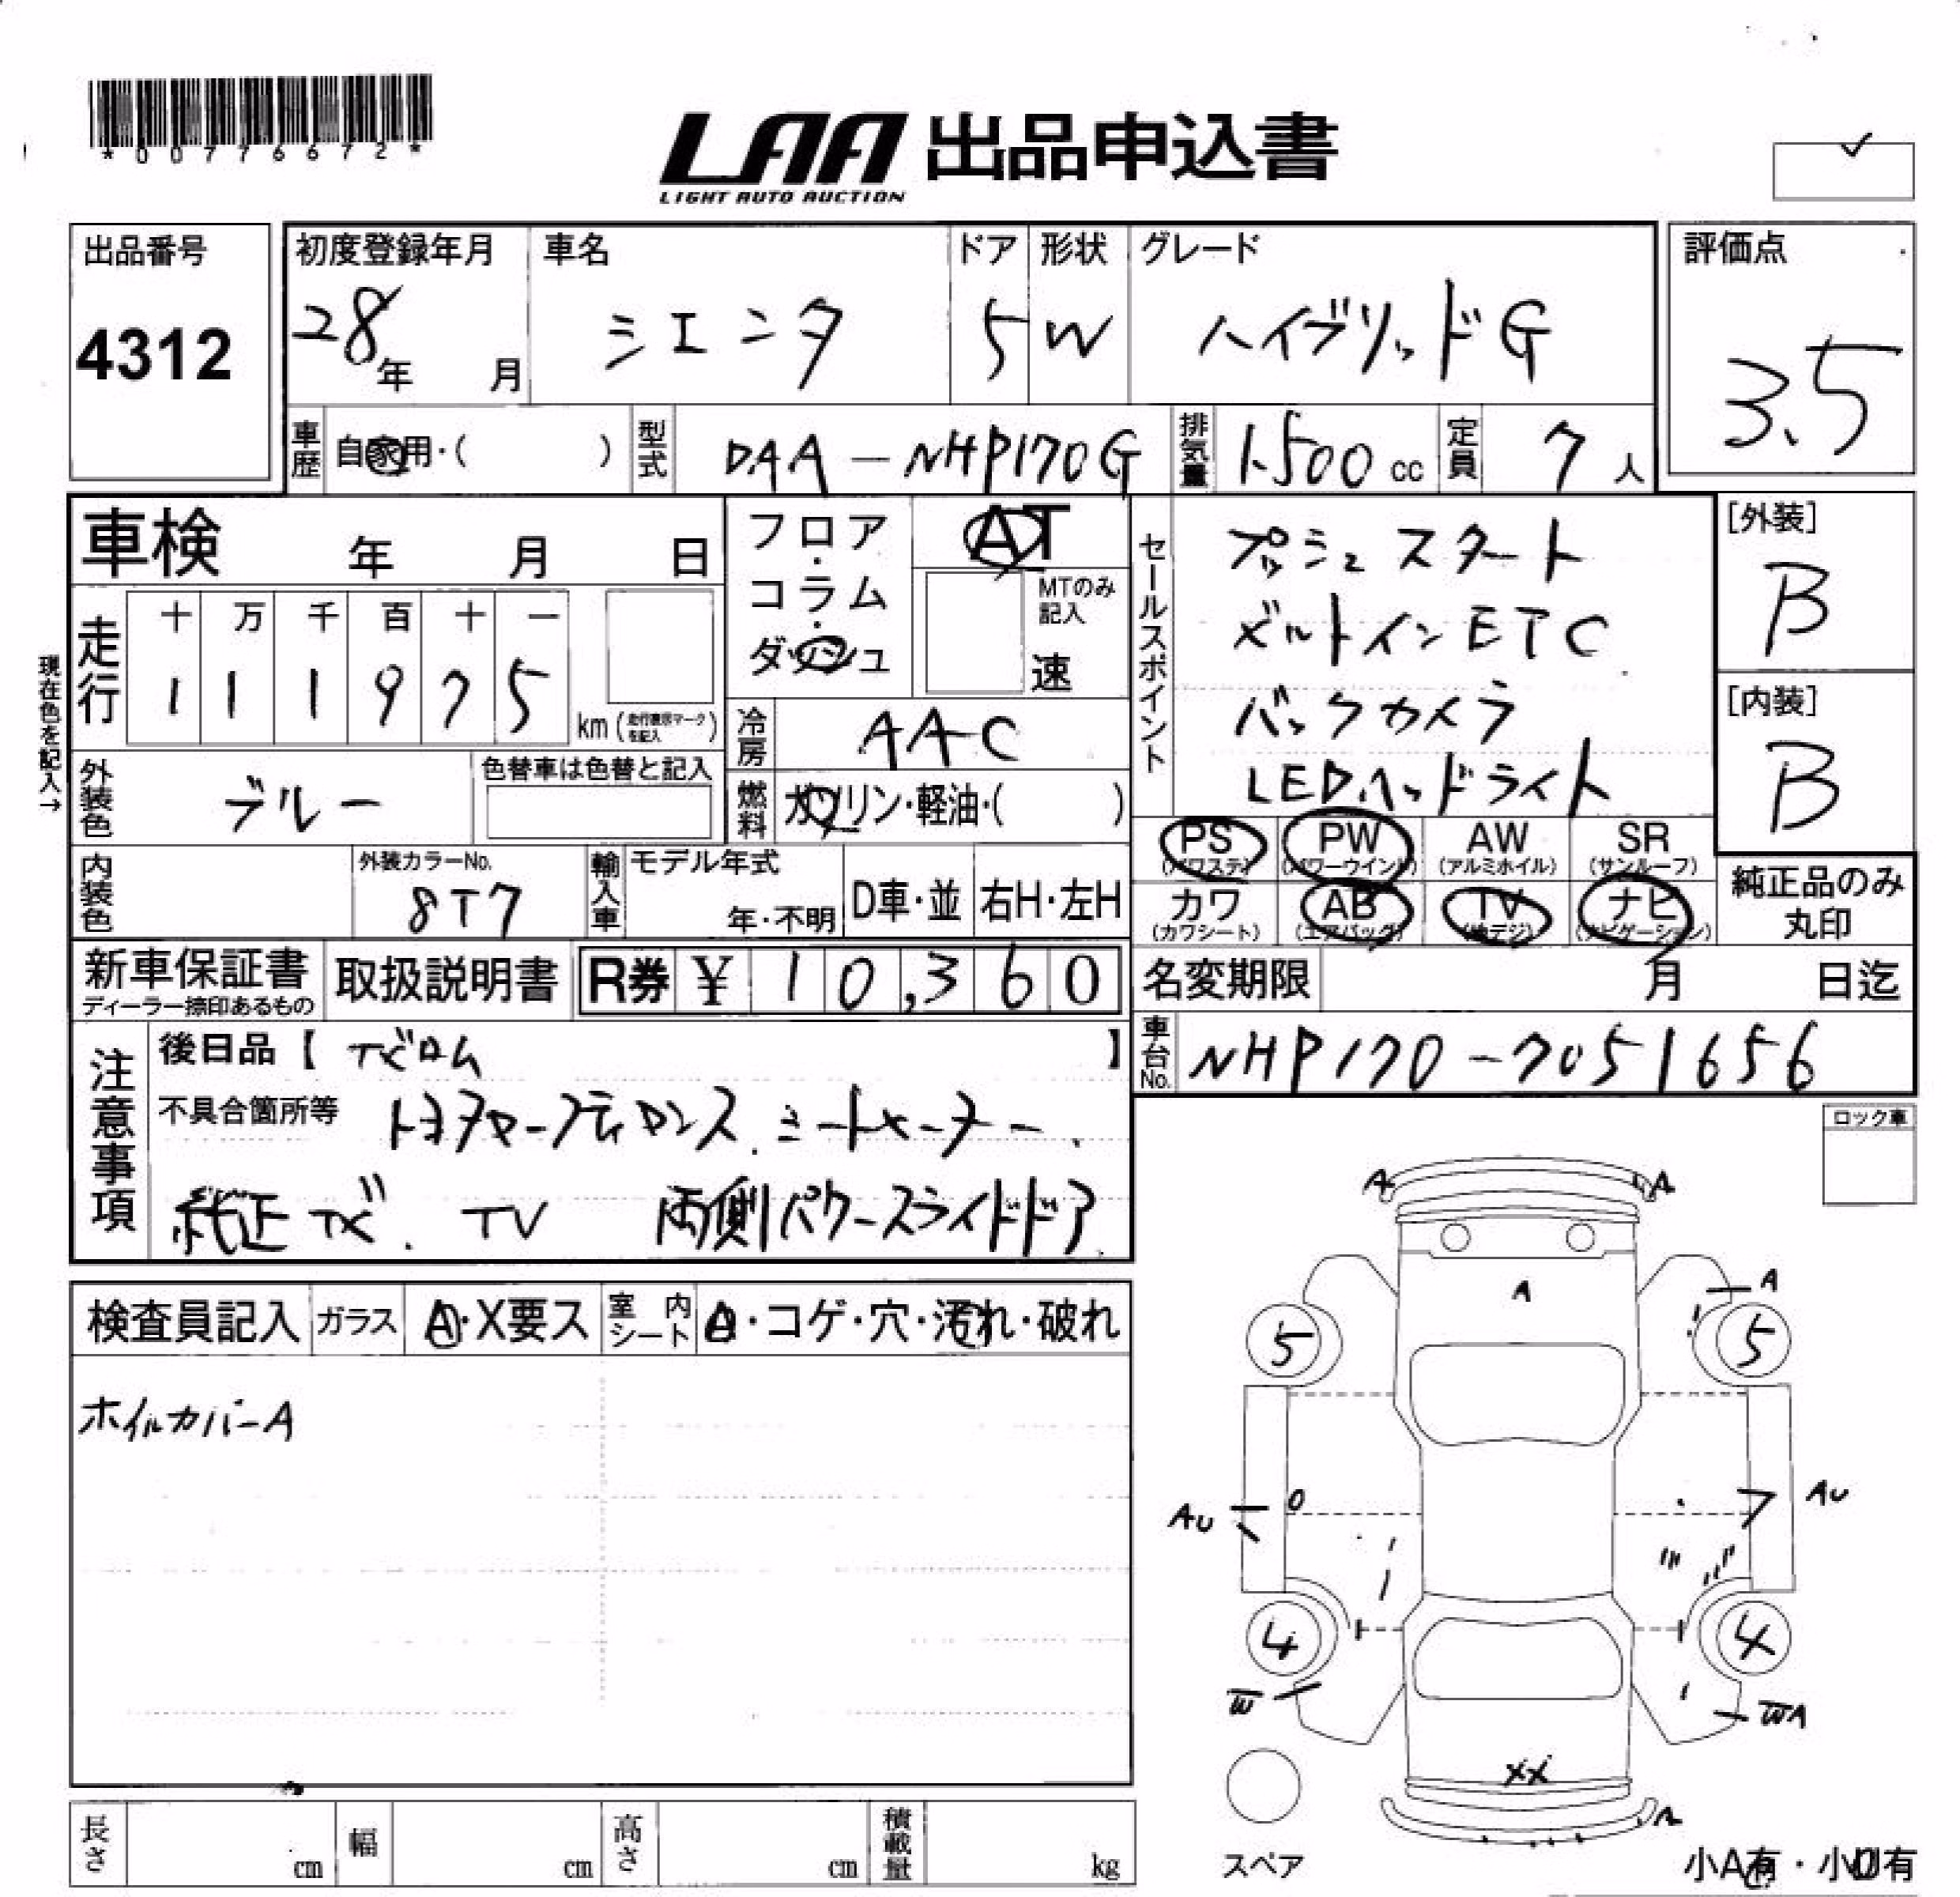 *00776672*
LAA 出品申込書
LIGHT AUTO AUCTION
出品番号
4312
初度登録年月
28年 月
車名
シエンタ
ドア
5
形状
W
グレード
ハイブリッドG
評価点
3.5
車歴 自家用・( )
型式 DAA-NHP170G
排気量 1500 cc
定員 7人
車検 年 月 日
フロア・コラム・ダッシュ
AT
MTのみ記入
速
セールスポイント
プッシュスタート
ビルトインETC
バックカメラ
LEDヘッドライト
[外装]
B
[内装]
B
現在色を記入→
走行
十 万 千 百 十 一
1 1 1 9 7 5
km(走行表示マークを記入)
冷房 AAC
外装色 ブルー
色替車は色替と記入
燃料 ガソリン・軽油・( )
PS (パワステ)
PW (パワーウインド)
AW (アルミホイル)
SR (サンルーフ)
カワ (カワシート)
AB (エアバッグ)
TV (地デジ)
ナビ (ナビゲーション)
純正品のみ丸印
内装色
外装カラーNo.
8T7
輸入車 モデル年式
年・不明
D車・並
右H・左H
新車保証書
ディーラー捺印あるもの
取扱説明書
R券 ¥ 10,360
名変期限 月 日迄
車台No. NHP170-7051656
注意事項
後日品【 】
不具合箇所等
シートヒーター.
純正ナビ. TV 両側パワースライドドア
ロック車
検査員記入 ガラス A・X要ス 室内シート A・コゲ・穴・汚れ・破れ
ホイルカバーA
A A
A
A
5 5
AU AU
4 4
W WA
XX
A
スペア
小A有・小U有
長さ cm
幅 cm
高さ cm
積載量 kg